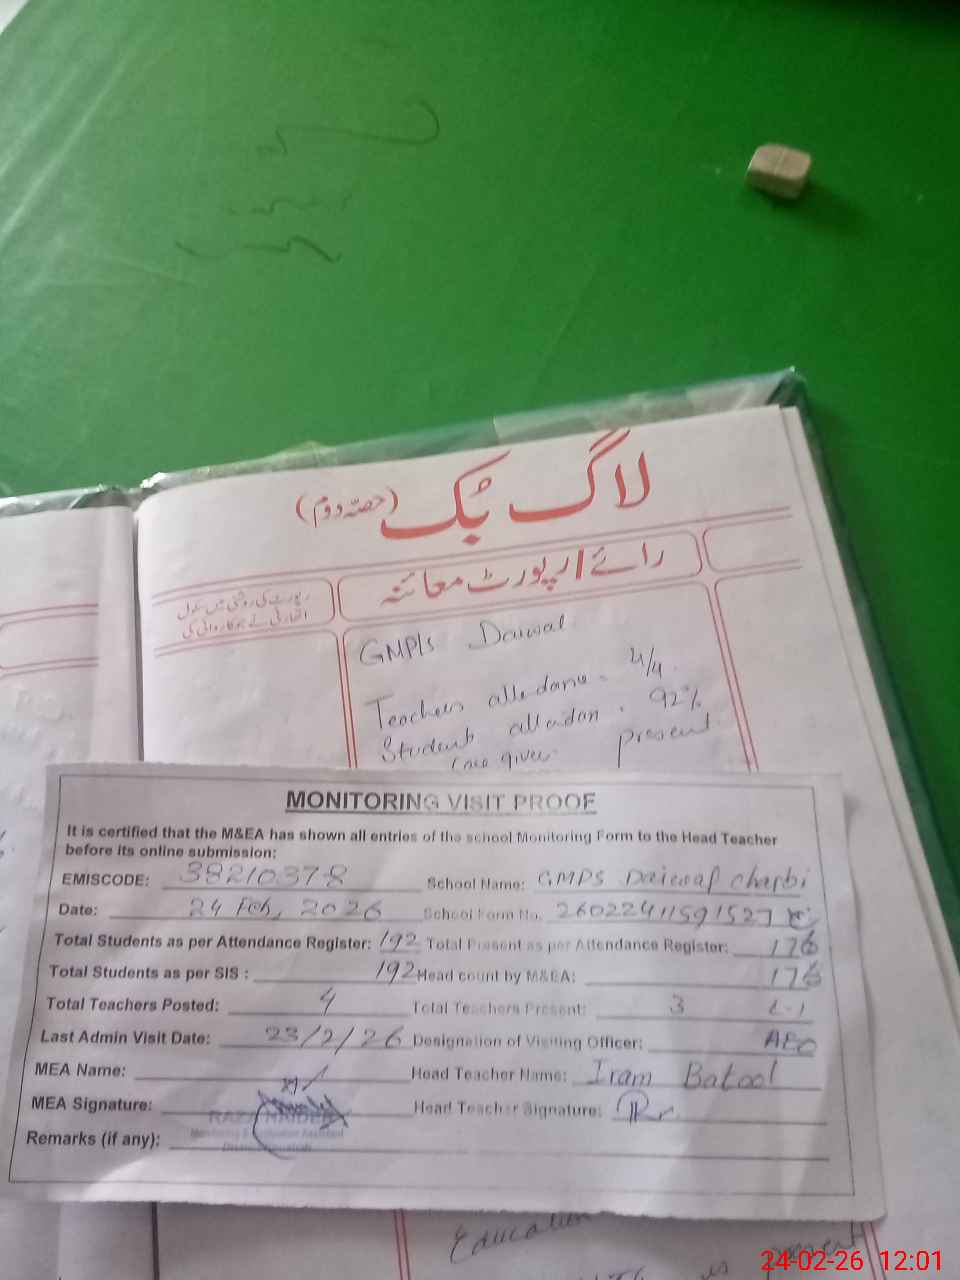 لاگ بُک (حصّہ دوم)
رائے / رپورٹ معائنہ
رپورٹ کی روشنی میں سکول
اتھارٹی نے جو کاروائی کی
GMPS Daiwal
Teachers attedance. 4/4
Student attedan. 92%
Care giver. present
MONITORING VISIT PROOF
It is certified that the M&EA has shown all entries of the school Monitoring Form to the Head Teacher
before its online submission;
EMISCODE: 38210378 School Name: GMPS Daiwal Charbi
Date: 24 Feb, 2026 School Form No.
Total Students as per Attendance Register: 192 Total Present as per Attendance Register: 176
Total Students as per SIS : 192 Head count by M&EA: 176
Total Teachers Posted: 4 Total Teachers Present: 3 L-1
Last Admin Visit Date: 23/2/26 Designation of Visiting Officer: AEO
MEA Name: Head Teacher Name: Iram Batool
MEA Signature: Head Teacher Signature:
RAZA HAIDER
Remarks (if any):
Education
is
24-02-26 12:01